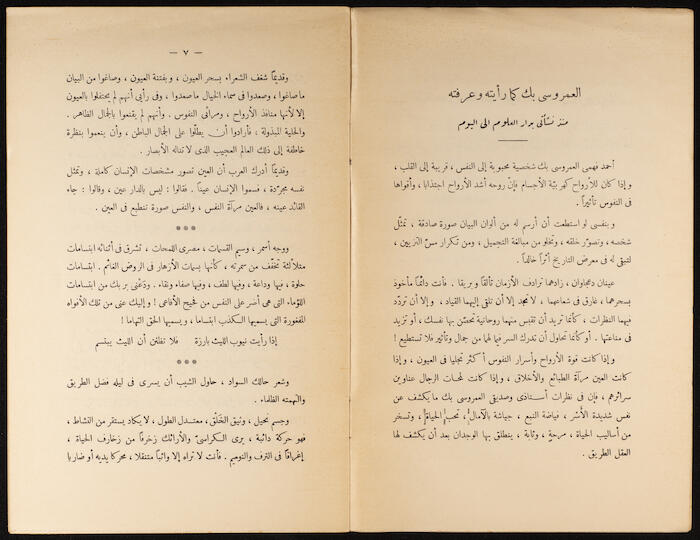 العمروسى بك كما رأيته وعرفته
منذ نشأتى بدار العلوم الى اليوم
أحمد فهمى العمروسى بك شخصية محبوبة إلى النفس ، قريبة إلى القلب ،
وإذا كان للأرواح كهربيّة الأجسام فإنّ روحه أشد الأرواح اجتذابا ، وأقواها
فى النفوس تأثيراً .
وبنفسى لو استطعت أن أرسم له من ألوان البيان صورة صادقة ، تمثّل
شخصه ، وتصوّر خلقه ، وتخلو من مبالغة التجميل ، ومن تكرار مسّ التزيين ،
لتبقى له فى معرض التاريخ أثراً خالداً .
عينان دعجاوان ، زادهما ترادف الأزمان تألقاً وبريقا . فأنت دائماً مأخوذ
بسحرهما ، غارق فى شعاعهما ، لا تجد إلا أن تلقى إليهما القياد ، وإلا أن تردّد
فيهما النظرات ، كأنما تريد أن تقبس منهما روحانية تحصّن بها نفسك ، أو تزيد
فى مناعتها . أو كأنما تحاول أن تدرك السر فيما لهما من جمال وتأثير فلا تستطيع !
وإذا كانت قوة الأرواح وأسرار النفوس أكثر تجليا فى العيون ، وإذا
كانت العين مرآة الطبائع والأخلاق ، وإذا كانت لمحات الرجال عناوين
سرائرهم ، فإن فى نظرات أستاذى وصديقى العمروسى بك ما يكشف عن
نفس شديدة الأسْر ، فياضة النبع ، جياشة بالآمال ، تحب الحياة ، وتسخر
من أساليب الحياة ، مرحةٍ ، وثابة ، ينطلق بها الوجدان بعد أن يكشف لها
العقل الطريق .
— ٧ —
وقديمًا شغف الشعراء بسحر العيون ، وبفتنة العيون ، وصاغوا من البيان
ما صاغوا ، وصعدوا فى سماء الخيال ما صعدوا ، وفى رأيى أنهم لم يحتفلوا بالعيون
إلا لأنها منافذ الأرواح ، ومرائى النفوس . وأنهم لم يقنعوا بالجمال الظاهر .
والحلية المبذولة ، فأرادوا أن يطلّوا على الجمال الباطن ، وأن ينعموا بنظرة
خاطفة إلى ذلك العالم العجيب الذى لا تناله الأبصار .
وقديمًا أدرك العرب أن العين تصور مشخصات الإنسان كاملة ، وتمثل
نفسه مجرّدة ، فسموا الإنسان عينًا . فقالوا : ليس بالدار عين ، وقالوا : جاء
القائد عينه ، فالعين مرآة النفس ، والنفس صورة تنطبع فى العين .
***
ووجه أسمر ، وسيم القسمات ، مصرى اللمحات ، تشرق فى أثنائه ابتسامات
متلألئة تخفّف من سمرته ، كأنها بسمات الأزهار فى الروض الغائم . ابتسامات
حلوة ، فيها وداعة ، وفيها لطف ، وفيها صفاء ونقاء . ودعْنى بربك من ابتسامات
اللؤماء التى هى أضر على النفس من فحيح الأفاعى ! وإليك عنى من تلك الأفواه
المفغورة التى يسميها الكذب ابتساما ، ويسميها الحق التهاما !
إذا رأيت نيوب الليث بارزة فلا تظنن أن الليث يبتسم
***
وشعر حالك السواد ، حاول الشيب أن يسرى فى ليله فضل الطريق
والتهمته الظلماء .
وجسم نحيل ، وثيق الخَلْق ، معتدل الطول ، لا يكاد يستقر من النشاط ،
فهو حركة دائبة ، يرى الكراسىّ والأرائك زخرفًا من زخارف الحياة ،
إغراقًا فى الترف والنعيم . فأنت لا تراه إلا واثبًا متنقلا ، محركا يديه أو ضاربا